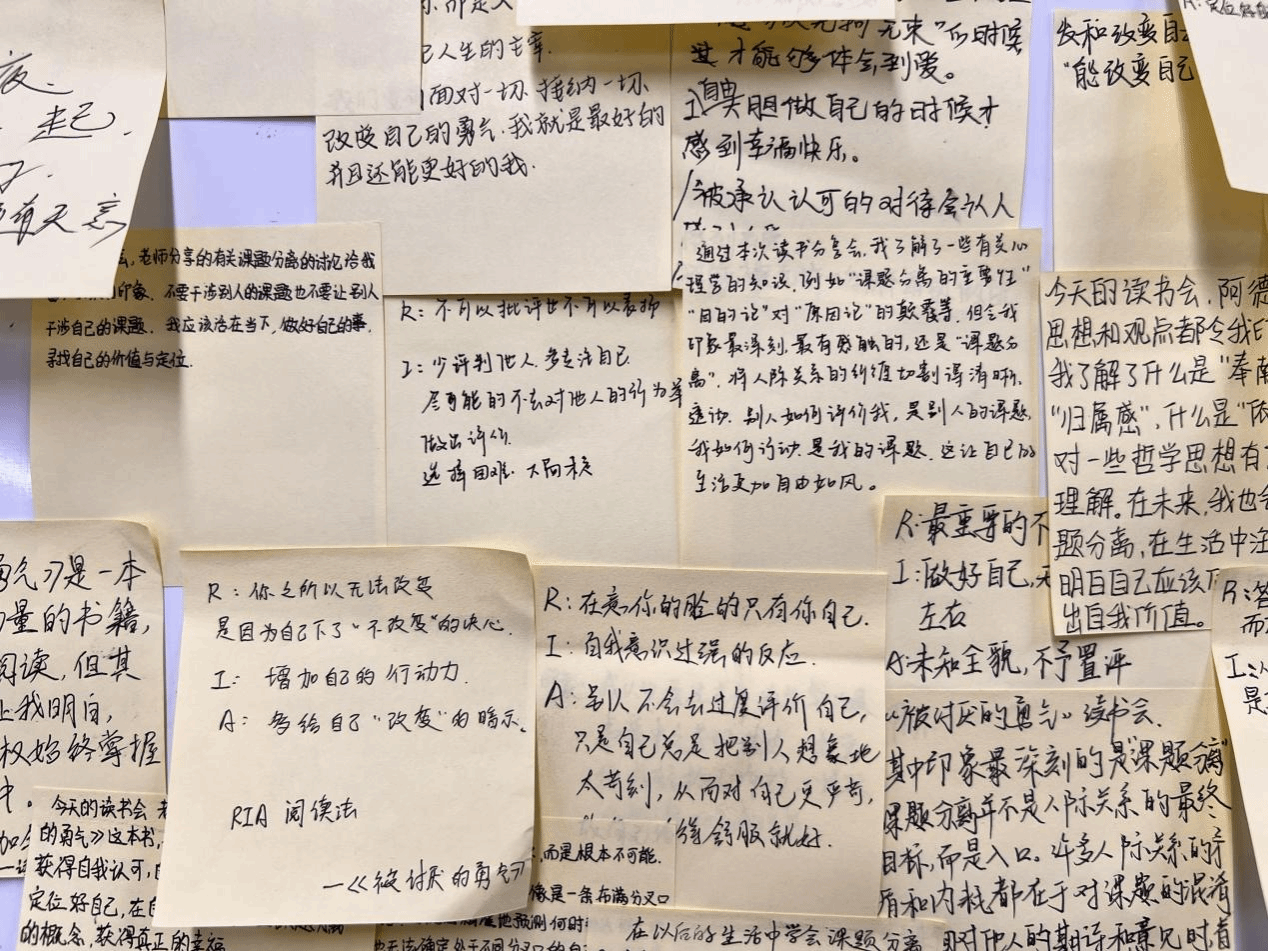 夜.
起己.
了.
人生的主宰.
面对一切.接纳一切.
改变自己的勇气.我就是最好的
并且还能更好的我.
无拘无束"的时候
才能够体会到爱。
I:大胆做自己的时候才
自卑
感到幸福快乐。
被承认认可的对待会认人
发和改变自己
"能改变自己
老师分享的有关课题分离的讨论给我
印象. 不要干涉别人的课题也不要让别人
干涉自己的课题. 我应该活在当下,做好自己的事,
寻找自己的价值与定位.
R: 不可以批评也不可以表扬
I: 少评判他人.多专注自己
尽可能的不去对他人的行为举
做出评价.
选择困难.
通过本次读书分享会,我了解了一些有关心
理学的知识,例如"课题分离的主要性"
"目的论"对"原因论"的颠覆等.但令我
印象最深刻,最有感触的,还是"课题分
离".将人际关系的纠缠切割得清晰、
透彻.别人如何评价我,是别人的课题,
我如何行动.是我的课题.这让自己的
生活更加自由如风。
今天的读书会,阿德
思想和观点都令我
我了解了什么是"奉献
"归属感",什么是"
对一些哲学思想有
理解。在未来,我也会
题分离,在生活中注
明白自己应该
出自我价值。
勇气》是一本
量的书籍,
阅读,但其
让我明白,
权始终掌握
中。
R:你之所以无法改变
是因为自己下了"不改变"的决心.
I: 增加自己的行动力.
A: 多给自己"改变"的暗示.
RIA 阅读法
—《被讨厌的勇气》
R:在意你的脸的只有你自己.
I: 自我意识过强的反应.
A:别人不会去过度评价自己,
只是自己总是把别人想象地
太苛刻,从而对自己更严苛,
舒服就好.
R:最重要的不
I:做好自己,
左右
A:未知全貌,不予置评
《被讨厌的勇气》读书会.
其中印象最深刻的是"课题分离"
课题分离并不是人际关系的最终
目标,而是入口。许多人际关系的矛
盾和内耗都在于对课题的混淆
对他人的期许和意见时有
R:答
而
I:
是
今天的读书会
的勇气》这本书,
获得自我认可,
定位好自己,在
的概念,获得真正的幸福
,而是根本不可能.
像是一条布满分叉口
预测何时
在以后的生活中学会课题分离